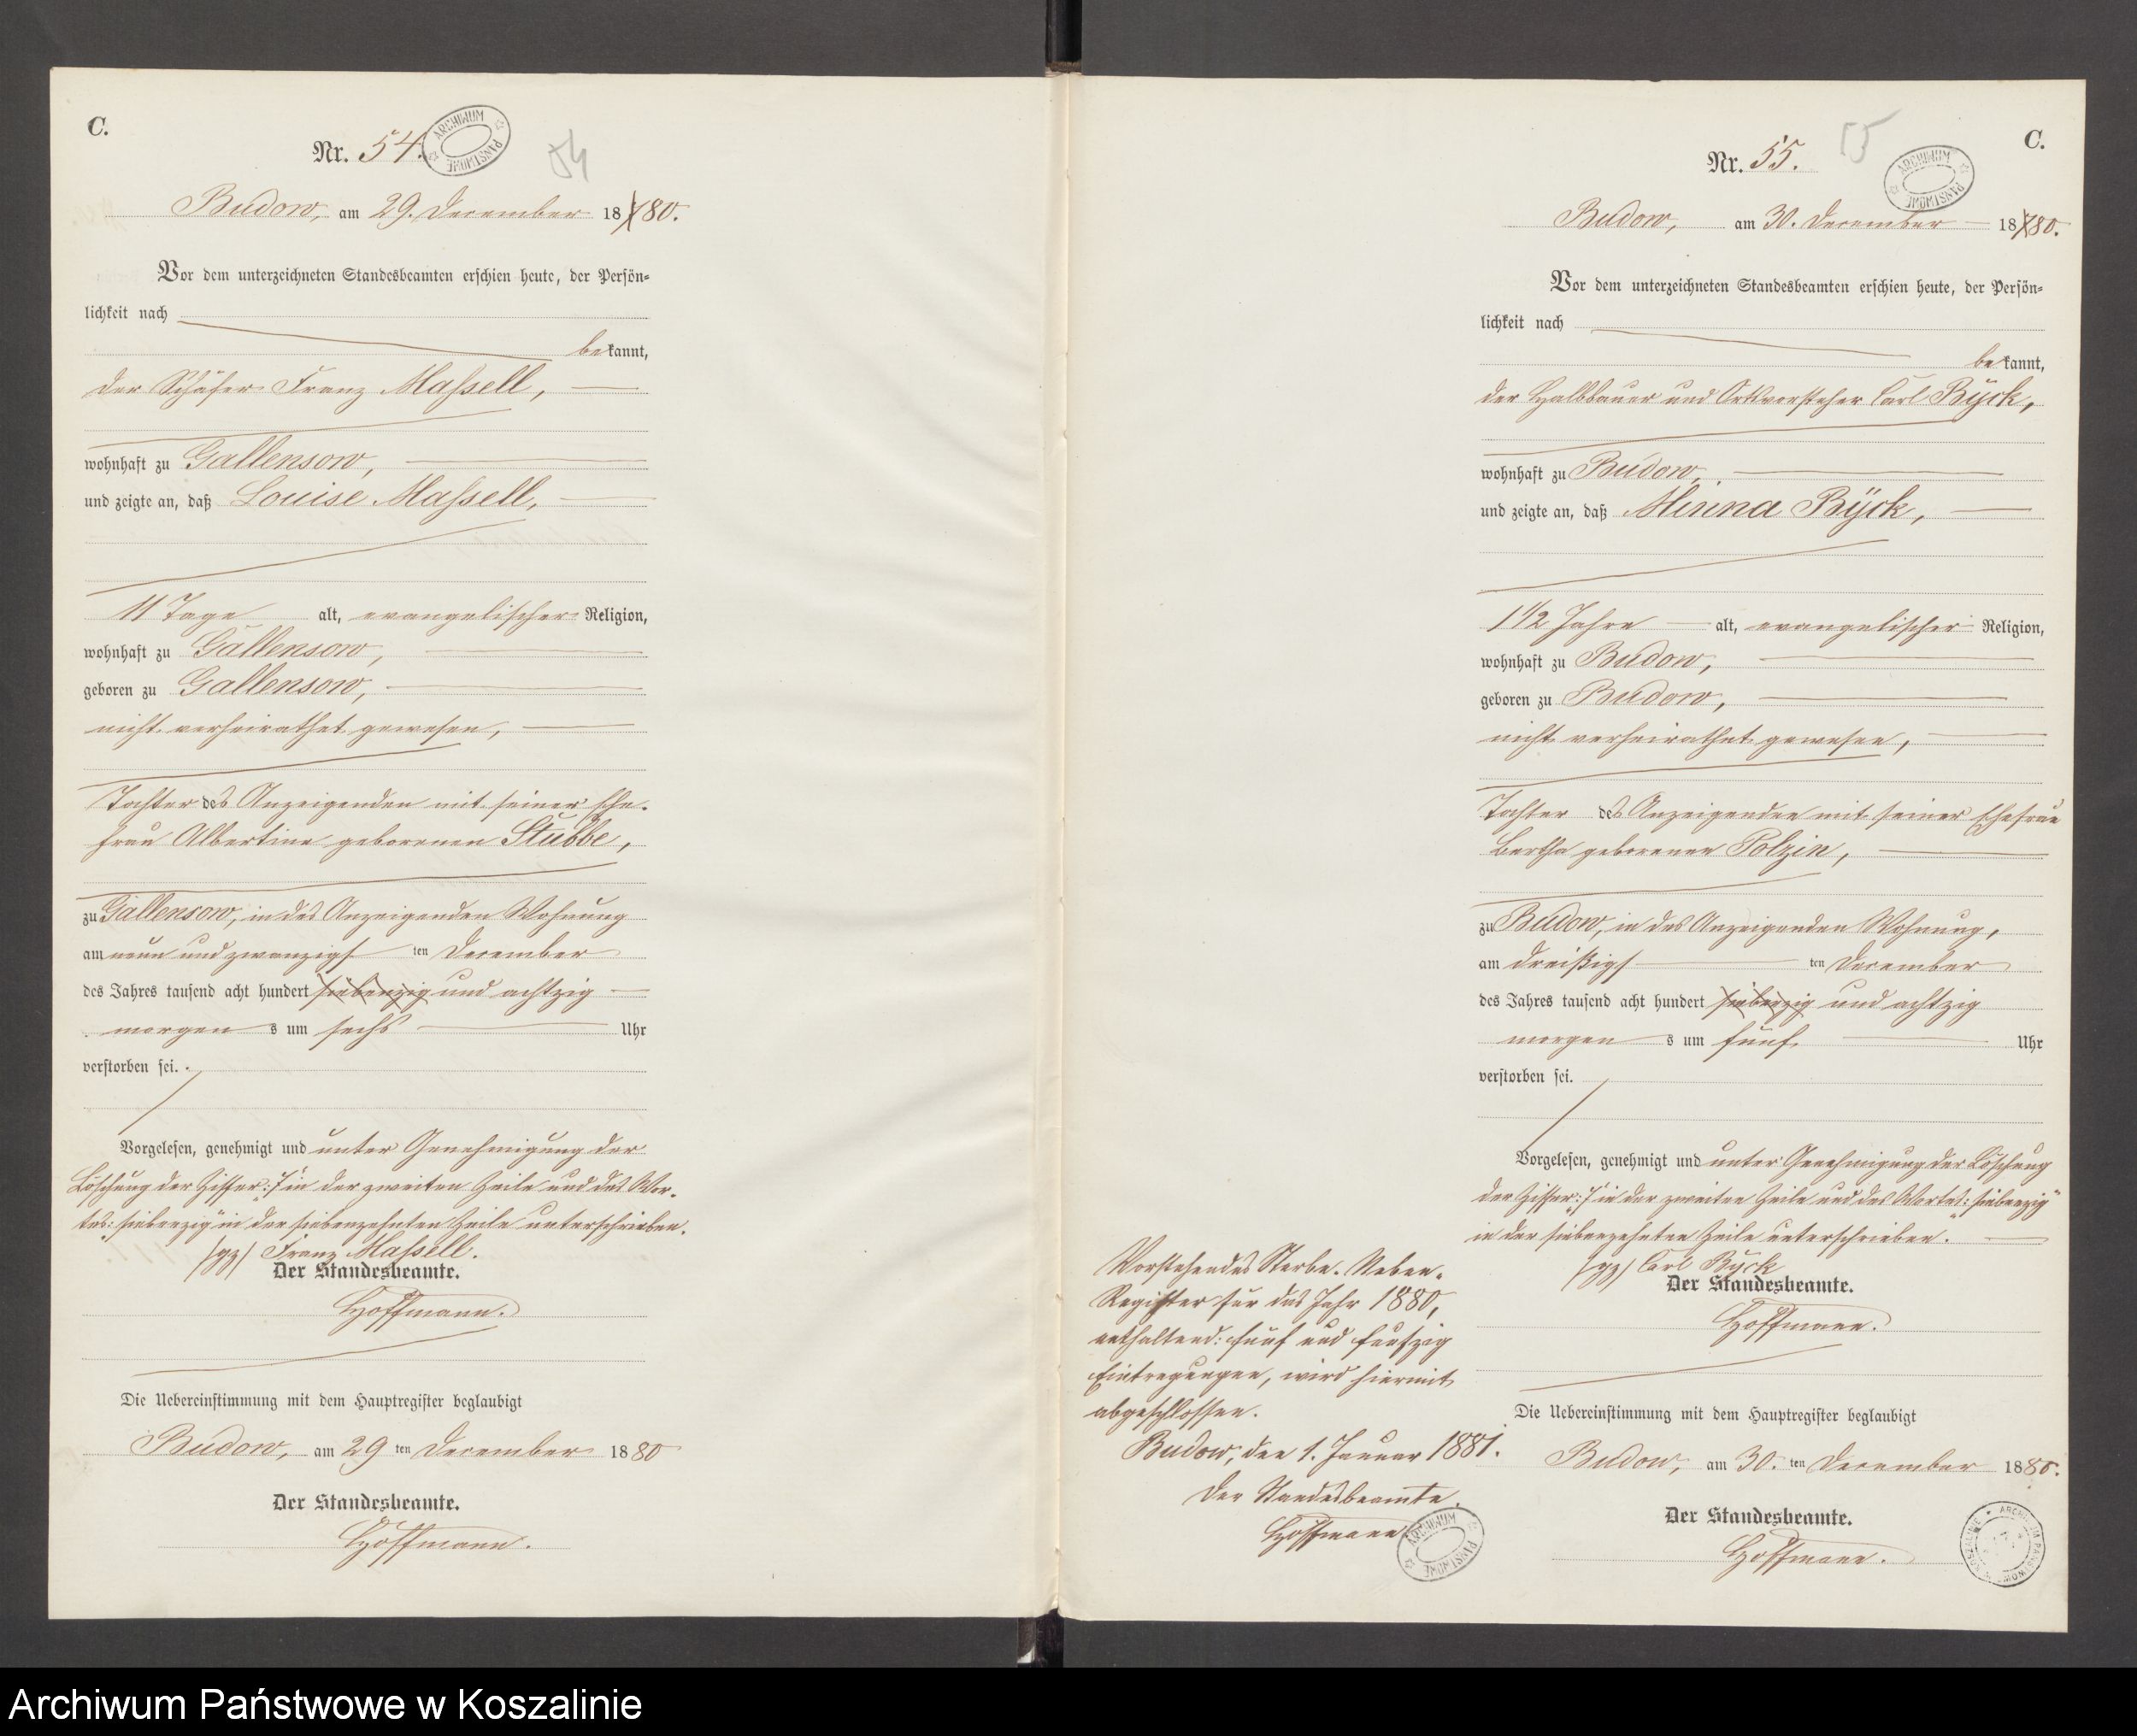 C.
Nr. 54.
ARCHIWUM PAŃSTWOWE
54
Budow, am 29. December 18780.
Vor dem unterzeichneten Standesbeamten erschien heute, der Persön-
lichkeit nach
bekannt,
der Schäfer Franz Massell,
wohnhaft zu Gallensow,
und zeigte an, daß Louise Massell,
11 Tage alt, evangelischer Religion,
wohnhaft zu Gallensow,
geboren zu Gallensow,
nicht verheirathet gewesen,
Tochter des Anzeigenden mit seiner Ehe-
frau Albertine geborenen Stubbe,
zu Gallensow, in des Anzeigenden Wohnung
am neun und zwanzigsten December
des Jahres tausend acht hundert siebenzig und achtzig
morgens um sechs Uhr
verstorben sei.
Vorgelesen, genehmigt und unter Genehmigung der
Löschung der Ziffer: „7" in der zweiten Zeile und des Wor-
tes: „siebenzig" in der siebenzehnten Zeile unterschrieben.
/gz/ Franz Massell.
Der Standesbeamte.
Hoffmann.
Die Uebereinstimmung mit dem Hauptregister beglaubigt
Budow, am 29 ten December 1880
Der Standesbeamte.
Hoffmann.
Vorstehendes Sterbe-Neben-
Register für das Jahr 1880,
enthaltend: fünf und funfzig
Eintragungen, wird hiermit
abgeschlossen.
Budow, den 1. Januar 1881.
Der Standesbeamte.
Hoffmann
ARCHIWUM PAŃSTWOWE
C.
Nr. 55.
55
ARCHIWUM PAŃSTWOWE
Budow, am 30. December 18780.
Vor dem unterzeichneten Standesbeamten erschien heute, der Persön-
lichkeit nach
bekannt,
der Halbbauer und Ortsvorsteher Carl Bÿck,
wohnhaft zu Budow,
und zeigte an, daß Minna Bÿck,
1 1/2 Jahre alt, evangelischer Religion,
wohnhaft zu Budow,
geboren zu Budow,
nicht verheirathet gewesen,
Tochter des Anzeigenden mit seiner Ehefrau
Bertha geborenen Polzin,
zu Budow, in des Anzeigenden Wohnung,
am dreißigsten December
des Jahres tausend acht hundert siebenzig und achtzig
morgens um fünf Uhr
verstorben sei.
Vorgelesen, genehmigt und unter Genehmigung der Löschung
der Ziffer: „7" in der zweiten Zeile und des Wortes: „siebenzig"
in der siebenzehnten Zeile unterschrieben.
/gz/ Carl Bÿck
Der Standesbeamte.
Hoffmann.
Die Uebereinstimmung mit dem Hauptregister beglaubigt
Budow, am 30. ten December 1880.
Der Standesbeamte.
Hoffmann.
Archiwum Państwowe w Koszalinie